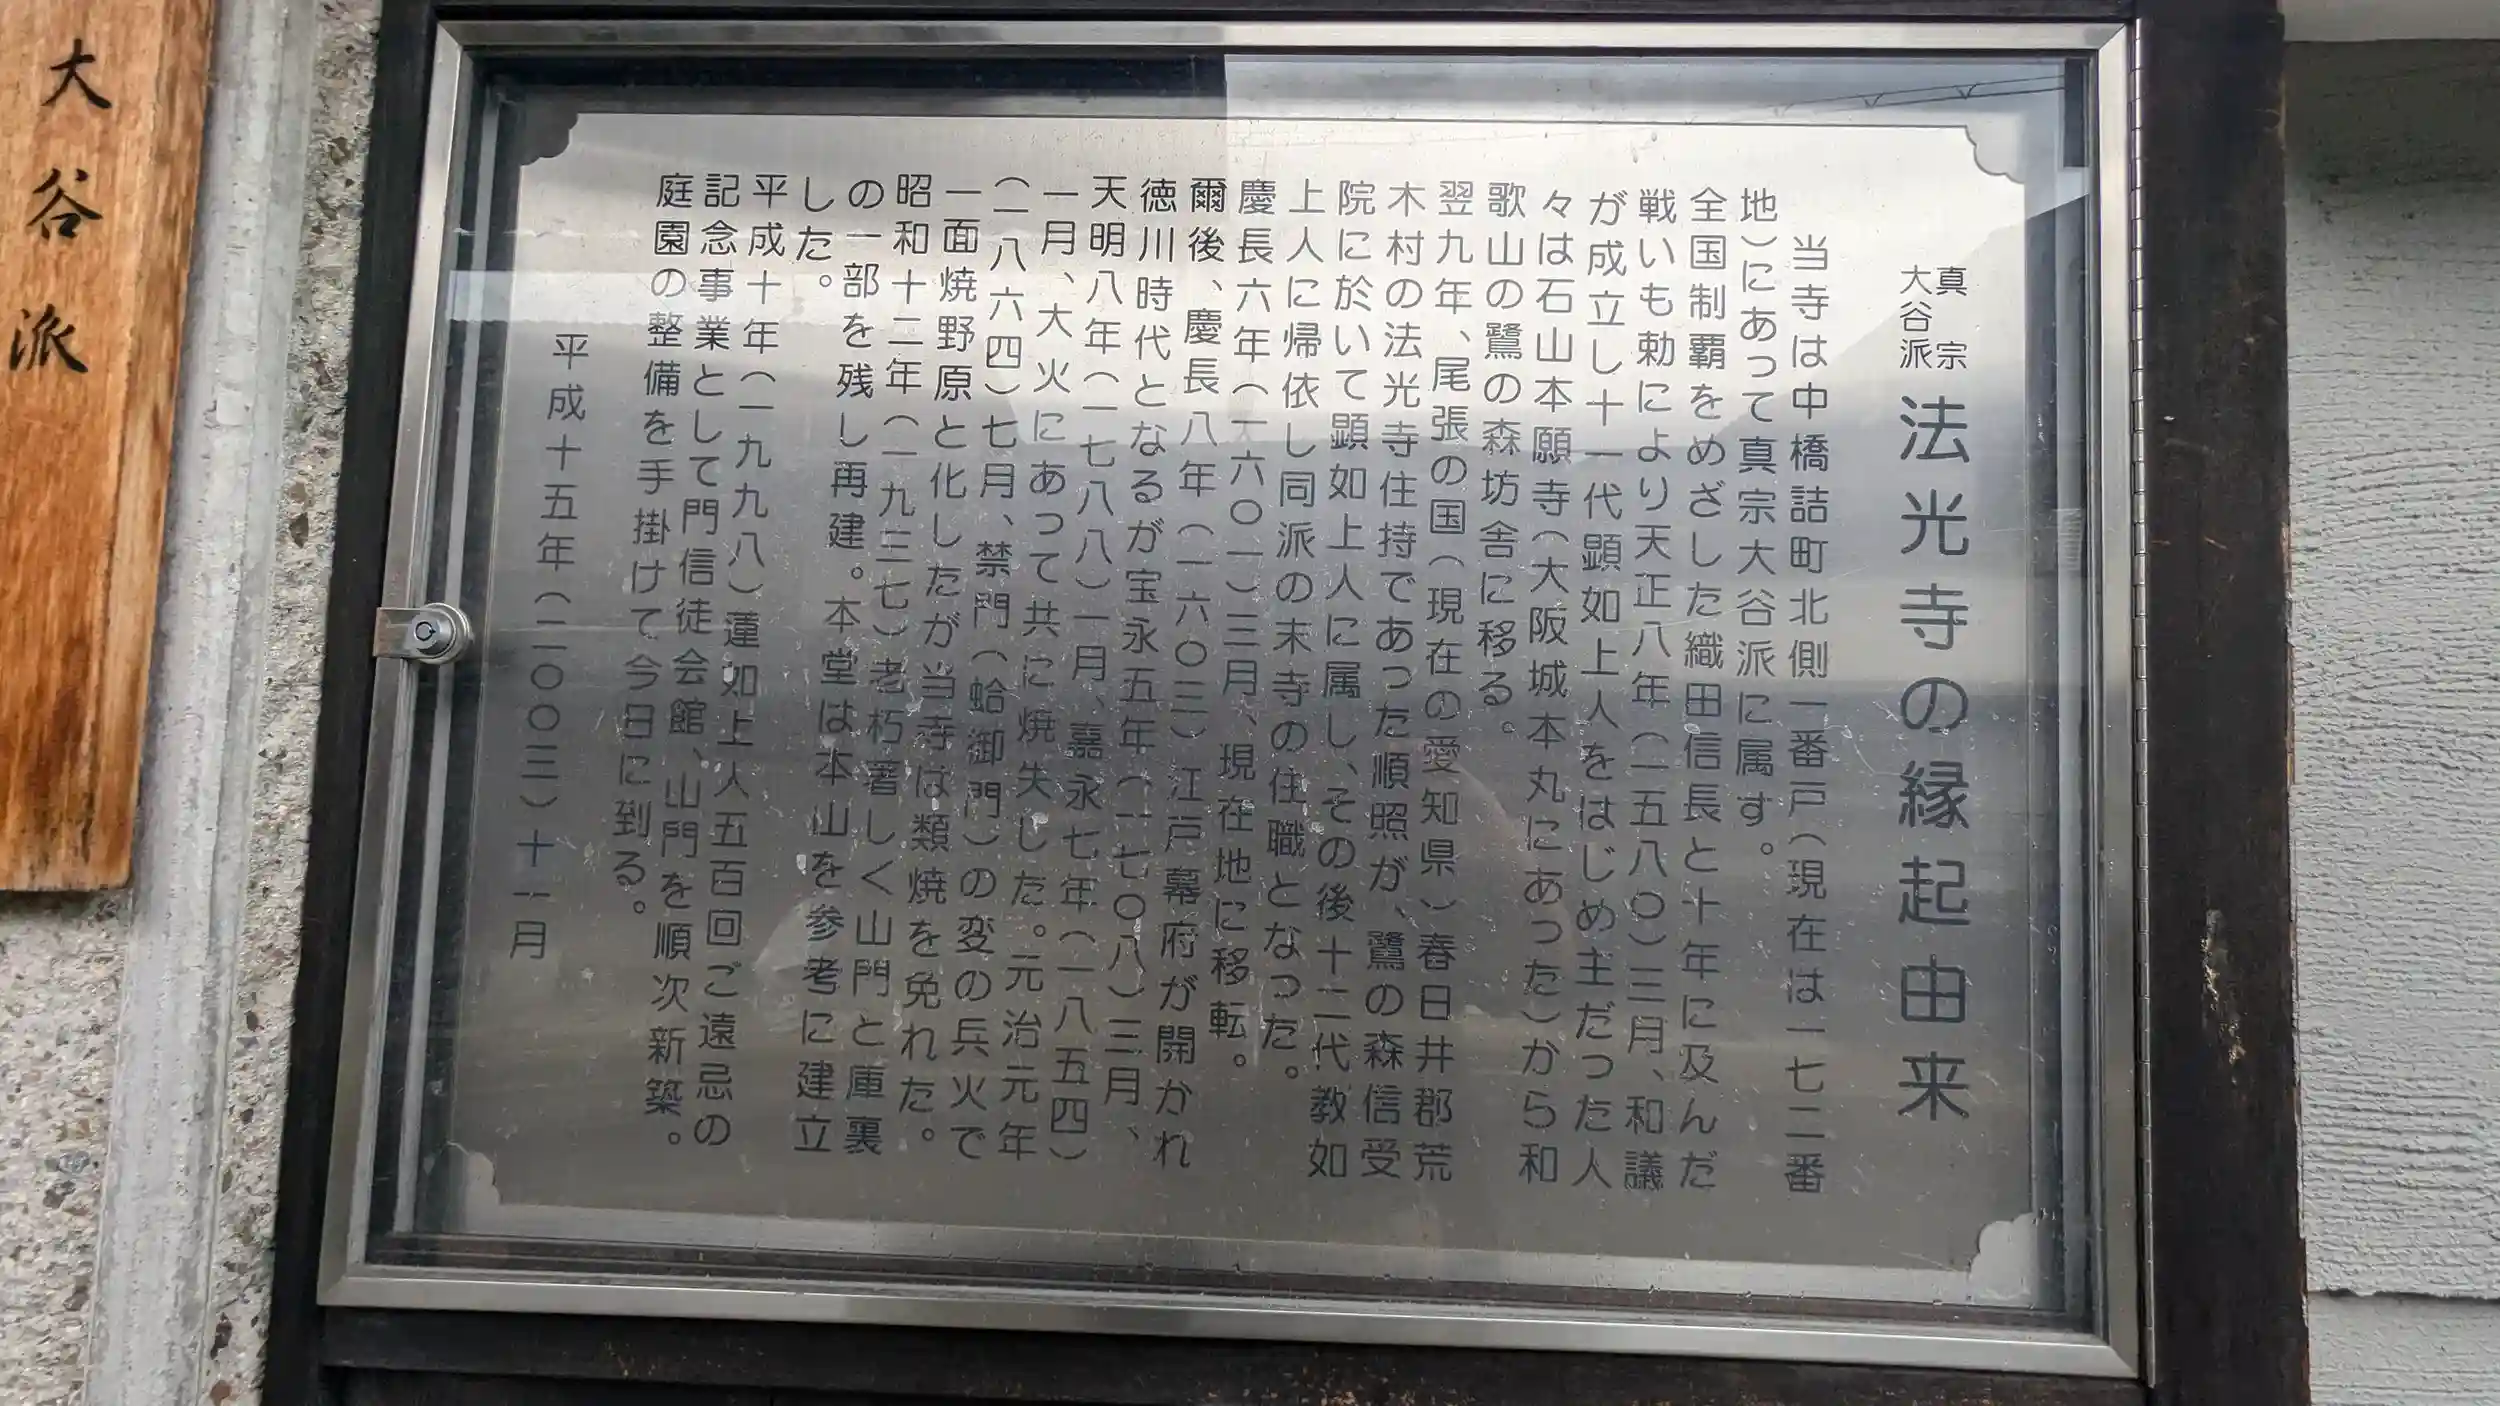 真宗
大谷派
法光寺の縁起由来
当寺は中橋詰町北側一番戸（現在は一七二番
地）にあって真宗大谷派に属す。
全国制覇をめざした織田信長と十年に及んだ
戦いも勅により天正八年（一五八〇）三月、和議
が成立し十一代顕如上人をはじめ主だった人
々は石山本願寺（大阪城本丸にあった）から和
歌山の鷺の森坊舎に移る。
翌九年、尾張の国（現在の愛知県）春日井郡荒
木村の法光寺住持であった順照が、鷺の森信受
院に於いて顕如上人に属し、その後十二代教如
上人に帰依し同派の末寺の住職となった。
慶長六年（一六〇一）三月、現在地に移転。
爾後、慶長八年（一六〇三）江戸幕府が開かれ
徳川時代となるが宝永五年（一七〇八）三月、
天明八年（一七八八）一月、嘉永七年（一八五四）
一月、大火にあって共に焼失した。元治元年
（一八六四）七月、禁門（蛤御門）の変の兵火で
一面焼野原と化したが当寺は類焼を免れた。
昭和十二年（一九三七）老朽著しく山門と庫裏
の一部を残し再建。本堂は本山を参考に建立
した。
平成十年（一九九八）蓮如上人五百回ご遠忌の
記念事業として門信徒会館、山門を順次新築。
庭園の整備を手掛けて今日に到る。
平成十五年（二〇〇三）十一月
大谷派